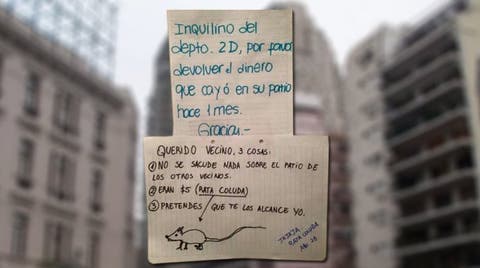 INQUILINO DEL
depto. 2D, por favor
devolver el dinero
que cayó en su patio
hace 1 mes.
Gracias.-
QUERIDO VECINO, 3 COSAS:
① NO SE SACUDE NADA SOBRE EL PATIO DE
LOS OTROS VECINOS.
② ERAN $5 (RATA COLUDA)
③ PRETENDES QUE TE LOS ALCANCE YO.
JAJAJA
RATA COLUDA